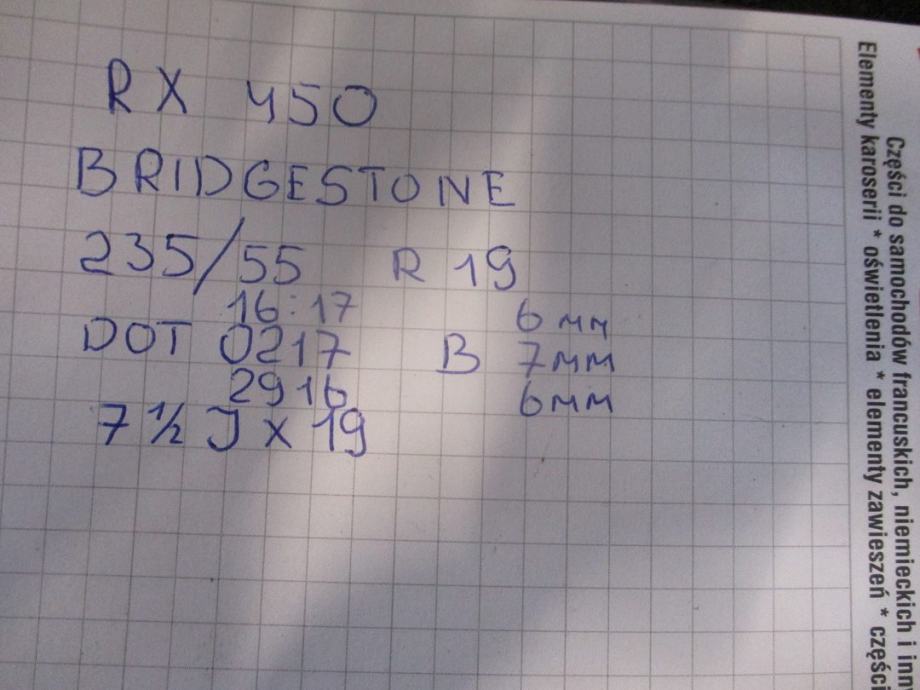 RX 450
BRIDGESTONE
235/55 R 19
16:17 6 мм
DOT 0217 B 7мм
2916 6мм
7 1/2 J X 19
Części do samochodów francuskich, niemieckich i inn
Elementy karoserii * oświetlenia * elementy zawieszeń * części